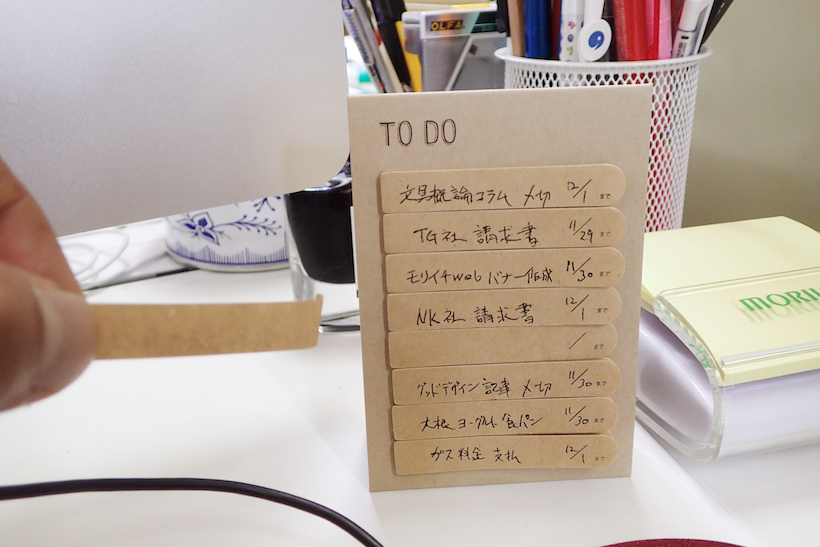 OLFA
TO DO
文具概論コラム 〆切 12/1 まで
TG社 請求書 11/29 まで
モリイチweb バナー作成 11/30 まで
NK社 請求書 12/1 まで
/ まで
グッドデザイン記事 〆切 11/30 まで
大根 ヨーグルト 食パン 11/30 まで
ガス料金 支払 12/1 まで
MORI